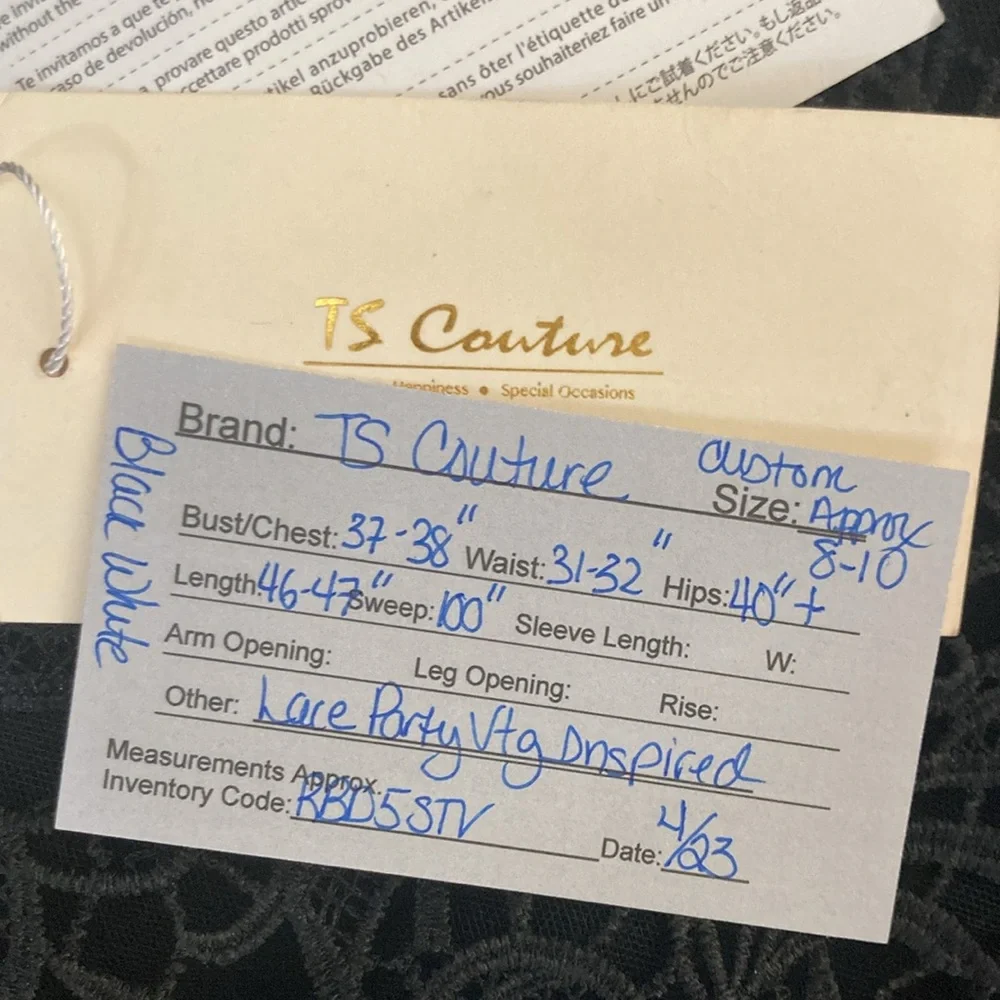 without the
Te invitamos a que te
aso de devolución,
provare questo artic
ccettare prodotti spro
ikel anzuprobieren,
Rückgabe des Artikel
sans ôter l'étiquette
ous souhaiteriez faire un
にご試着ください。もし返品
せんのでご注意ください。
TS Couture
Happiness • Special Occasions
Brand: TS Couture custom
Size: Approx
8-10
Bust/Chest: 37-38" Waist: 31-32" Hips: 40"+
Length: 46-47" Sweep: 100" Sleeve Length: W:
Arm Opening: Leg Opening: Rise:
Other: Lace Party Vtg Inspired
Measurements Approx.
Inventory Code: RBD5STV Date: 4/23
Black White